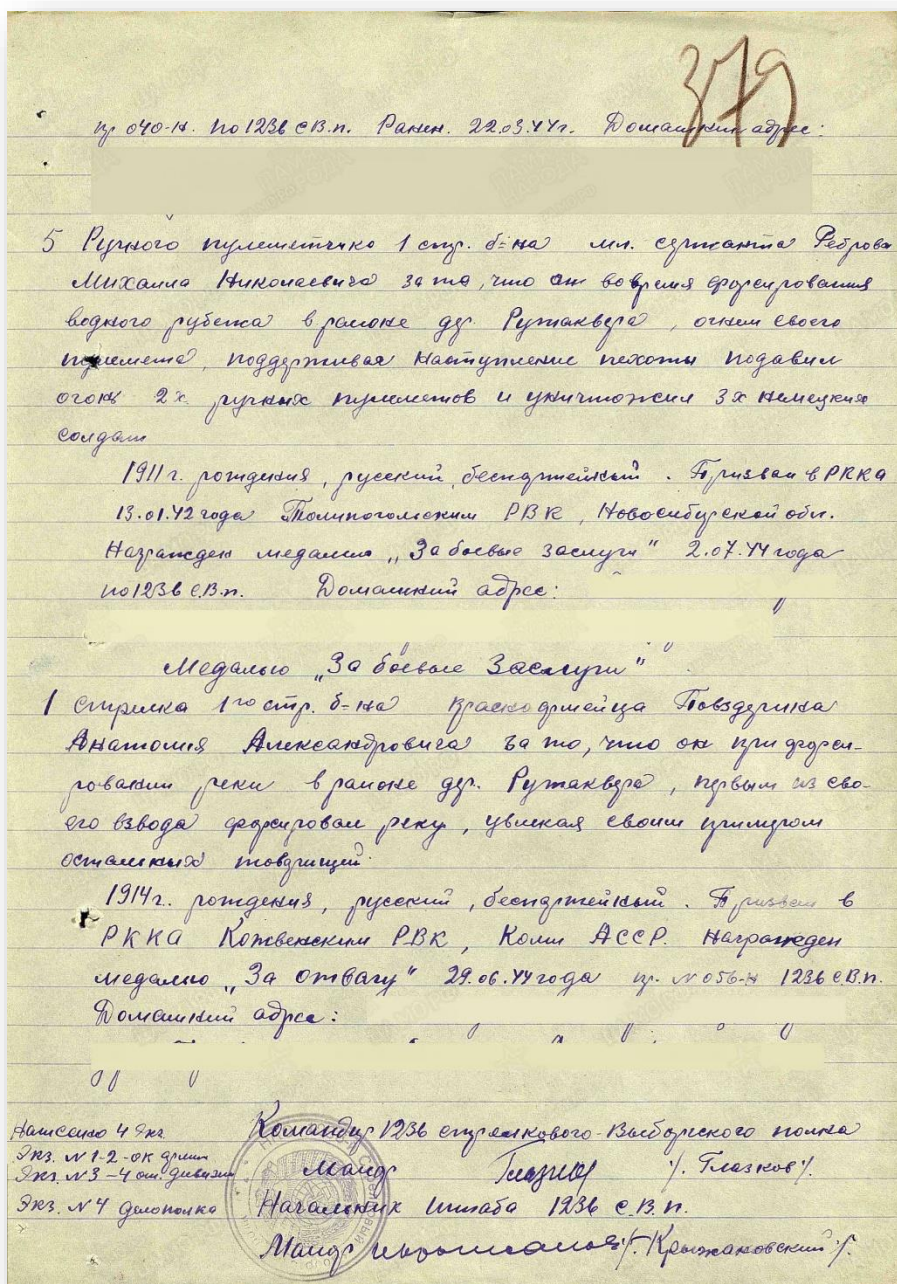 379
пр 040-Н. по 1236 с.В.п. Ранен. 22.03.44г. Домашний адрес:
5 Ручного пулеметчика 1 стр. б-на мл. сержанта Реброва
Михаила Николаевича за то, что он вовремя форсирования
водного рубежа в районе дер. Рутаквера, огнем своего
пулемета, поддерживая наступление пехоты подавил
огонь 2х ручных пулеметов и уничтожил 3х немецких
солдат
1911 г. рождения, русский, беспартейный. Призван в РККА
13.01.42 года РВК, Новосибирской обл.
Награжден медалью „За боевые заслуги" 2.07.44 года
по 1236 с.В.п. Домашний адрес:
Медалью „За боевые Заслуги"
1 Стрелка 1го стр. б-на красноармейца
Анатолия Александровича за то, что он при форси-
ровании реки в районе дер. Рутаквера, первым из сво-
его взвода форсировал реку, увлекая своим примером
остальных товарищей.
1914 г. рождения, русский, беспартейный. Призван в
РККА Кожвенским РВК, Коми АССР. Награжден
медалью „За отвагу" 29.06.44 года пр. № 056-Н 1236 с.В.п.
Домашний адрес:
Написано 4 экз.
Экз. № 1-2-ок армии
Экз. № 3-4 от. дивизии
Экз. № 4 дело полка
Командир 1236 стрелкового-Выборгского полка
Майор /. Глазков /.
Начальник штаба 1236 с.В.п.
Майор /. Крыжановский /.